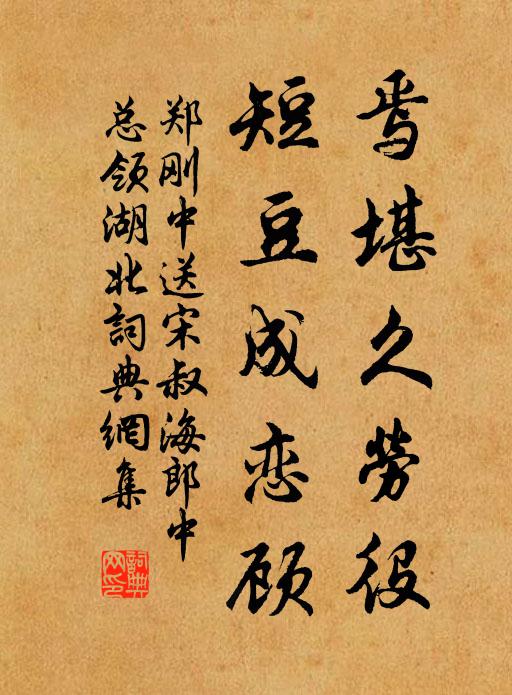 焉堪久勞役
短豆成恋顾
郑刚中送宋叔海郎中
总领湖北詞典網集
詞典
网印